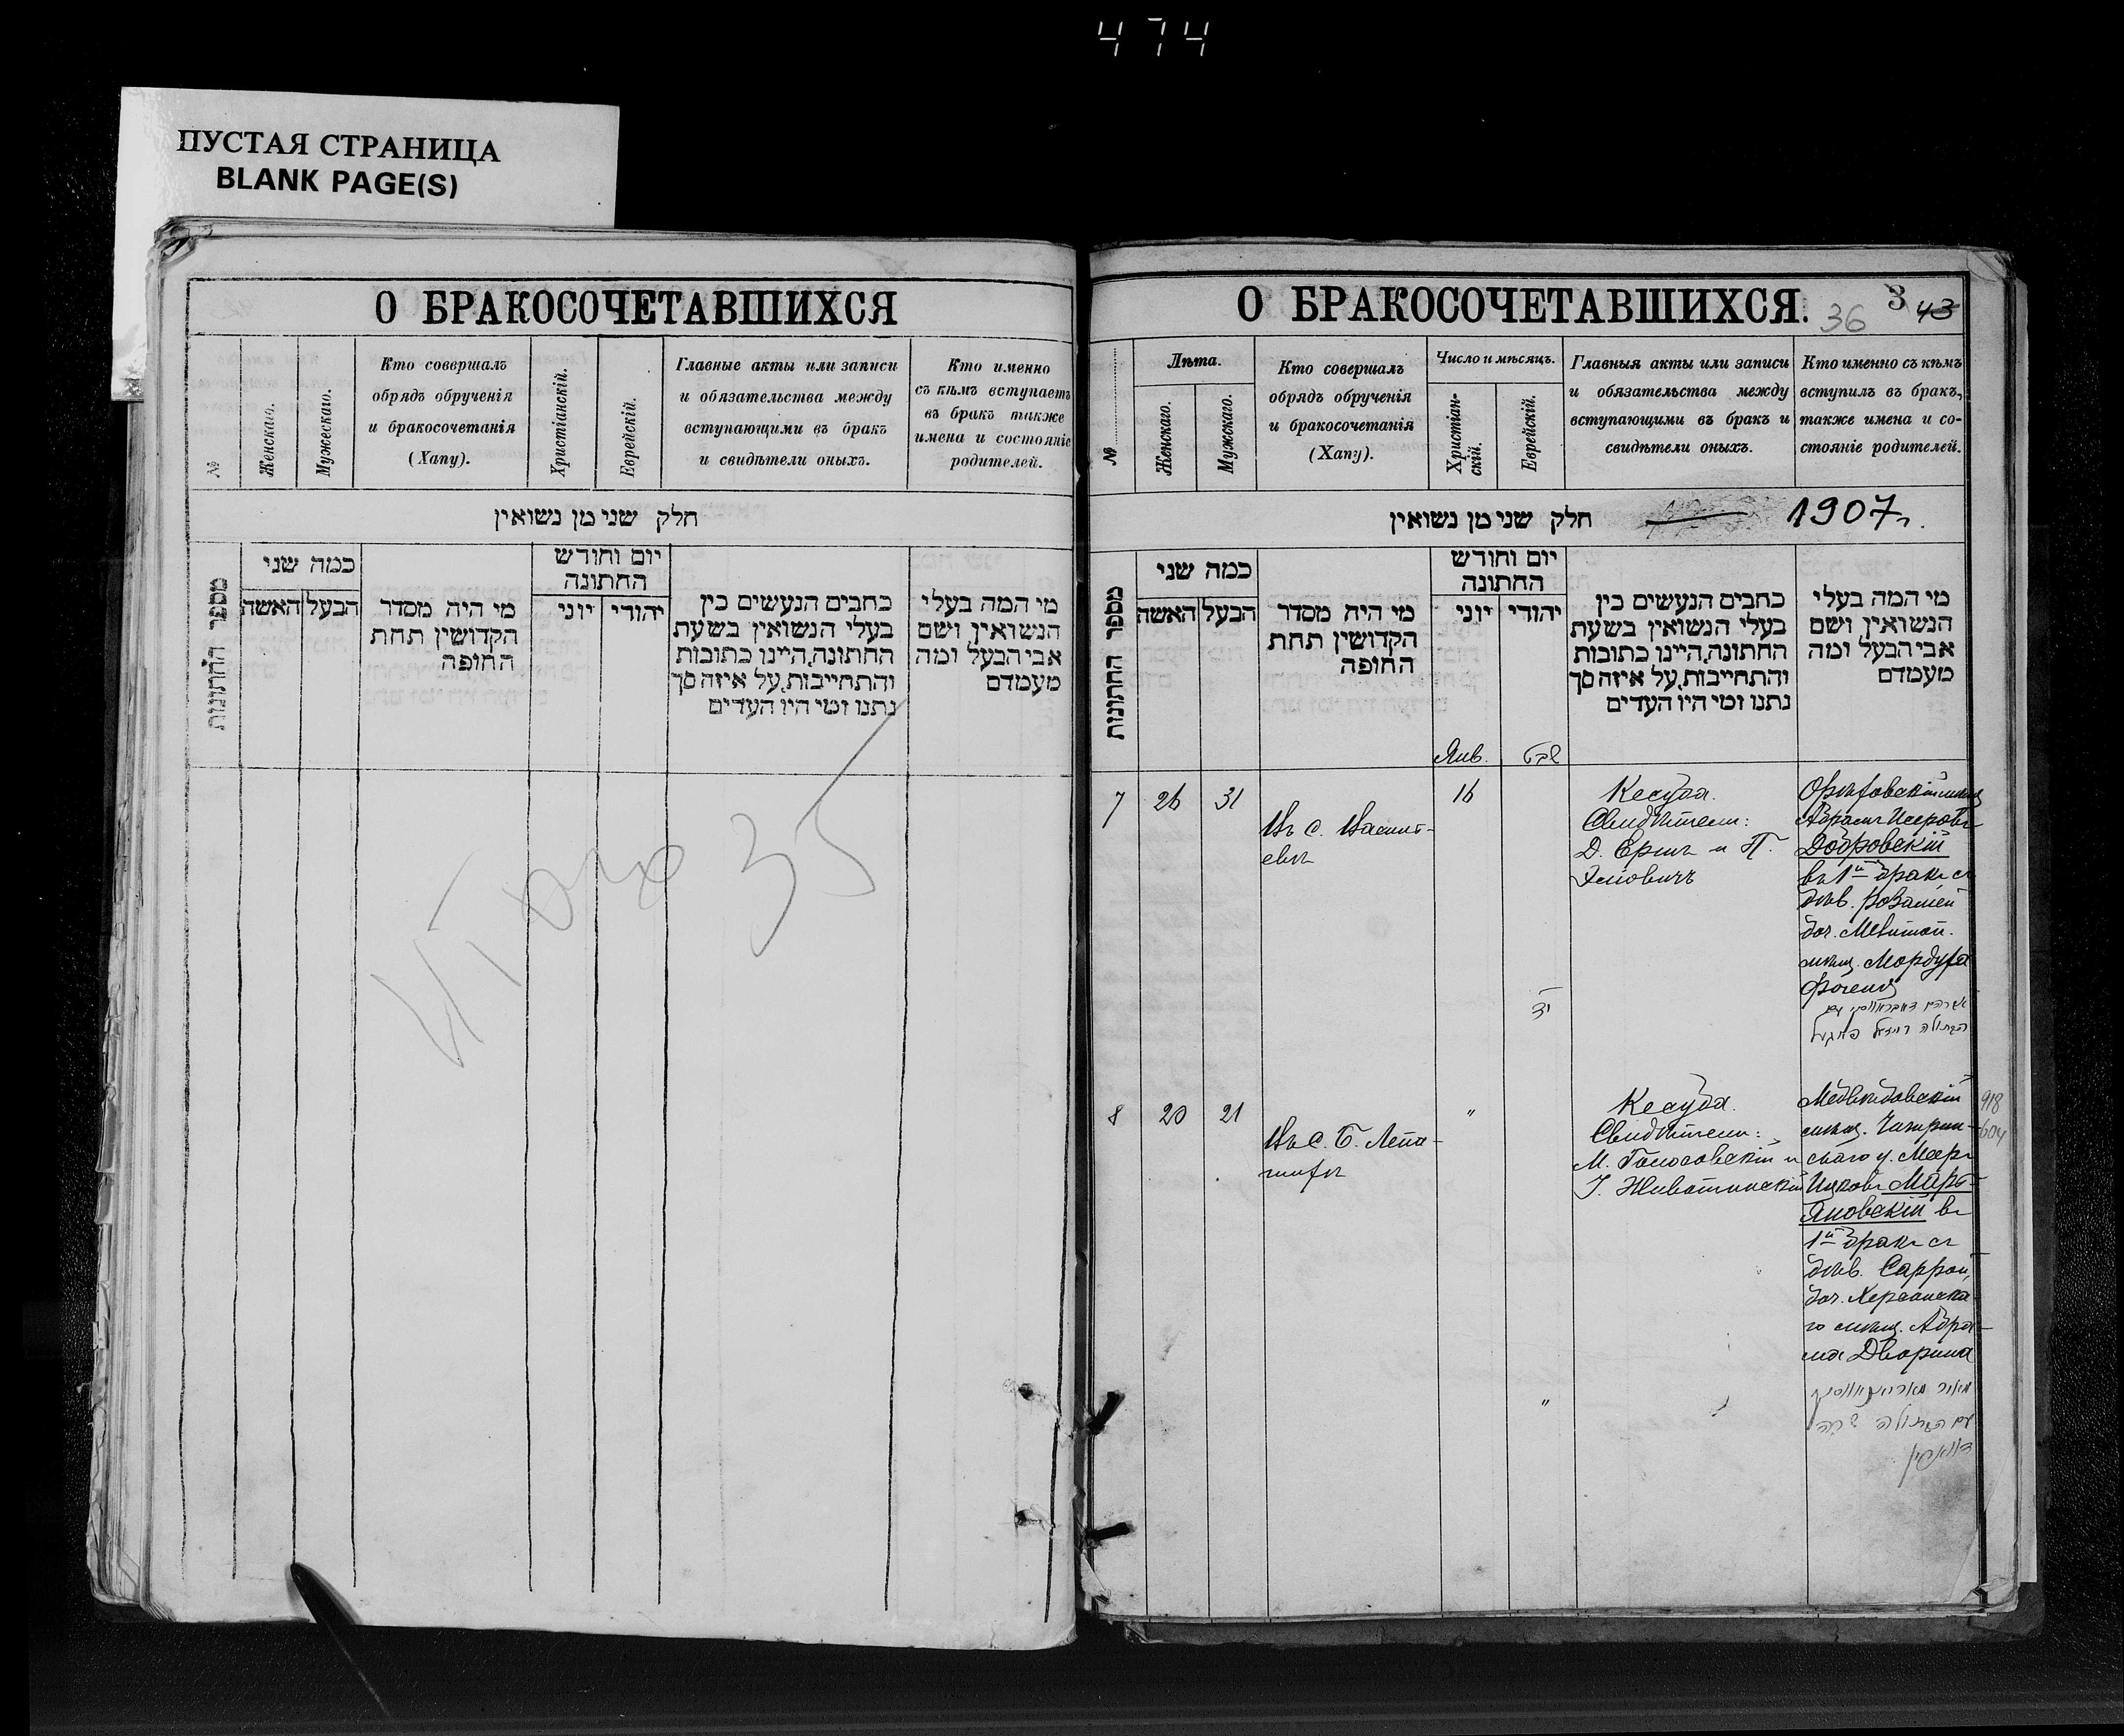 474
ПУСТАЯ СТРАНИЦА
BLANK PAGE(S)
О БРАКОСОЧЕТАВШИХСЯ
№
Женскаго.
Мужескаго.
Кто совершалъ
обрядъ обрученія
и бракосочетанія
(Хапу).
Христіанскій.
Еврейскій.
Главные акты или записи
и обязательства между
вступающими въ бракъ
и свидѣтели оныхъ.
Кто именно
съ кѣмъ вступаетъ
въ бракъ также
имена и состояніе
родителей.
חלק שני מן נשואין
מספר החתונות
כמה שני
הבעל האשה
מי היה מסדר
הקדושין תחת
החופה
יום וחודש
החתונה
יהודי יוני
כתבים הנעשים בין
בעלי הנשואין בשעת
החתונה, היינו כתובות
והתחייבות, על איזה סך
נתנו ומי היו העדים
מי המה בעלי
הנשואין ושם
אבי הבעל ומה
מעמדם
Итого 35
О БРАКОСОЧЕТАВШИХСЯ.
36 3 43
№
Лѣта.
Женскаго.
Мужскаго.
Кто совершалъ
обрядъ обрученія
и бракосочетанія
(Хапу).
Число и мѣсяцъ.
Христіан-
скій.
Еврейскій.
Главныя акты или записи
и обязательства между
вступающими въ бракъ и
свидѣтели оныхъ.
Кто именно съ кѣмъ
вступилъ въ бракъ,
также имена и со-
стояніе родителей.
חלק שני מן נשואין
1907 г.
מספר החתונות
כמה שני
הבעל האשה
מי היה מסדר
הקדושין תחת
החופה
יום וחודש
החתונה
יהודי יוני
כתבים הנעשים בין
בעלי הנשואין בשעת
החתונה, היינו כתובות
והתחייבות, על איזה סך
נתנו ומי היו העדים
מי המה בעלי
הנשואין ושם
אבי הבעל ומה
מעמדם
Янв.
שבט
7 26 31
16
Кесуба.
Свидѣтели:
Д. Ершъ и П.
Добровскій
въ 1й бракъ съ
дѣв. Розаліей
доч.
мѣщ. Мордуха
יד
8 20 21
"
Кесуба.
Свидѣтели:
М. Голосовскій и
І. Животинскій
Медвѣдовскій
мѣщ. Чигирин-
скаго у. Мееръ
Ицковъ Марь-
яновскій въ
1й бракъ съ
дѣв. Саррой,
доч. Херсонска-
го мѣщ. Абра-
ма Дворина
918
604
"
עם הבתולה שרה